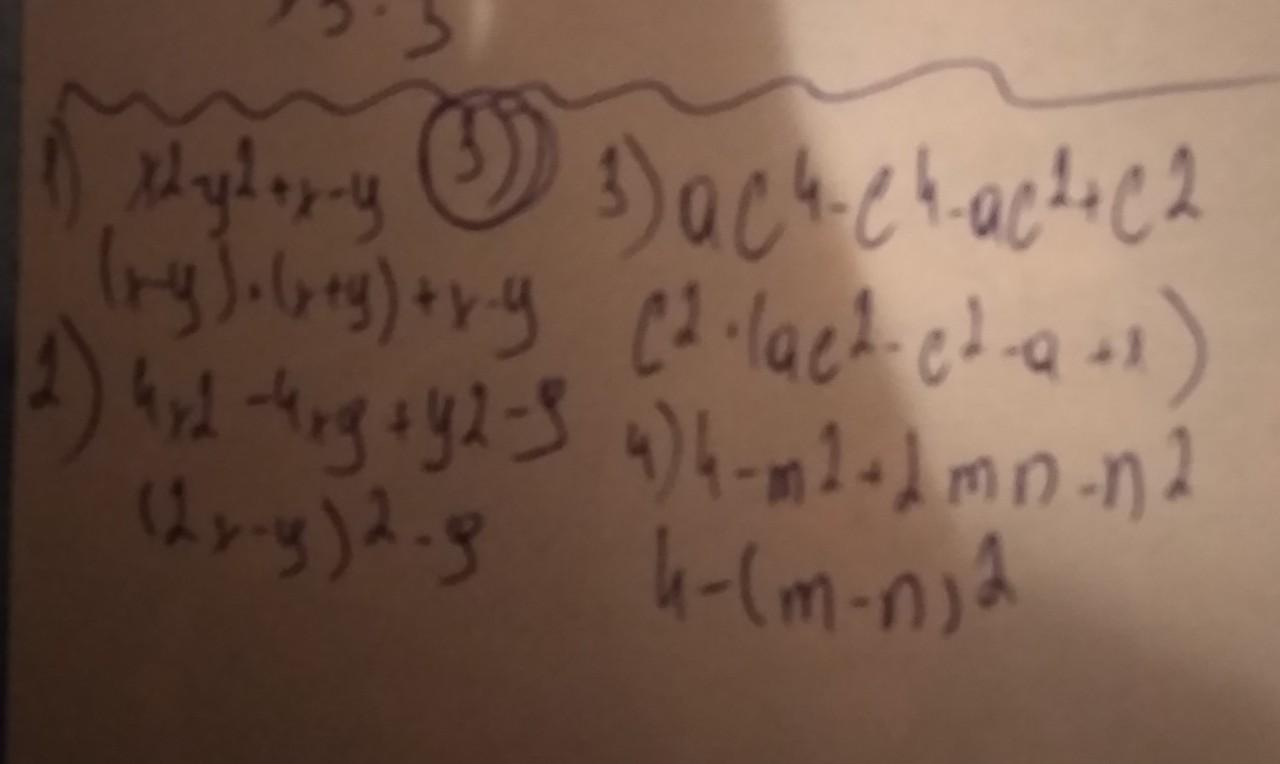 3
1) x2-y2+x-y
(x-y)·(x+y)+x-y
2) 4x2-4xy+y2-9
(2x-y)2-9
3) ac4-c4-ac2+c2
c2·(ac2-c2-a+1)
4) 4-m2+2mn-n2
4-(m-n)2